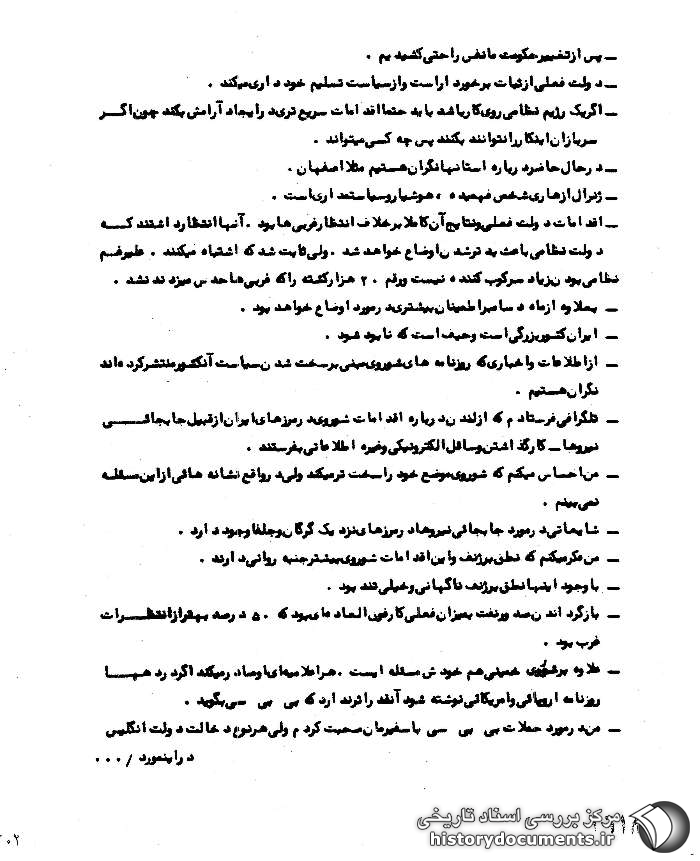 ـ پس از تغییر حکومت ما نفس راحتی کشیدیم .
ـ دولت فعلی از ثبات برخوردار است و از سیاست تسلیم خودداری میکند .
ـ اگر یک رژیم نظامی روی کار باشد باید حتما اقدامات سریع تری در ایجاد آرامش بکند چون اگر
سربازان اینکار را نتوانند بکنند پس چه کسی میتواند .
ـ در حال حاضر درباره استانها نگران هستیم مثلا اصفهان .
ـ ژنرال ازهاری شخص فهمیده ، هوشیار و سیاستمداری است .
ـ اقدامات دولت فعلی و نتایج آن کاملا برخلاف انتظار غربی ها بود . آنها انتظار داشتند که
دولت نظامی باعث بدتر شدن اوضاع خواهد شد . ولی ثابت شد که اشتباه میکنند . علیرغم
نظامی بودن زیاد سرکوب کننده نیست و رقم ۲۰ هزار کشته را که غربی ها حدس میزدند نشد .
ـ بعلاوه از ماه دسامبر اطمینان بیشتری در مورد اوضاع خواهد بود .
ـ ایران کشور بزرگی است و حیف است که نابود شود .
ـ از اطلاعات و اخباری که روزنامه های شوروی مبنی بر سخت شدن سیاست آنکشور منتشر کرده اند
نگران هستیم .
ـ تلگرافی فرستادم که از لندن درباره اقدامات شوروی در مرزهای ایران از قبیل جابجائی
نیروها ـ کار گذاشتن وسائل الکترونیکی وغیره اطلاعاتی بفرستند .
ـ من احساس میکنم که شوروی موضع خود را سخت تر میکند ولی در واقع نشانه هائی از این مسئله
نمی بینم .
ـ شایعاتی در مورد جابجائی نیروها در مرزهای نزدیک گرگان و جلفا وجود دارد .
ـ من فکر میکنم که نطق برژنف و این اقدامات شوروی بیشتر جنبه روانی دارند .
ـ با وجود اینها نطق برژنف ناگهانی و خیلی تند بود .
ـ بازگرداندن صدور نفت بمیزان فعلی کار فوق العاده ای بود که ۵۰ درصد بهتر از انتظارات
غرب بود .
ـ علاوه بر شوروی خمینی هم خودش مسئله ایست . هر اعلامیه ای او صادر میکند اگر در دهها
روزنامه اروپائی و امریکائی نوشته شود آنقدر اثر ندارد که بی بی سی بگوید .
ـ من در مورد حملات بی بی سی با سفیرمان صحبت کردم ولی هر نوع دخالت دولت انگلیس
در اینمورد / ۰۰۰
مرکز بررسی اسناد تاریخی
historydocuments.ir